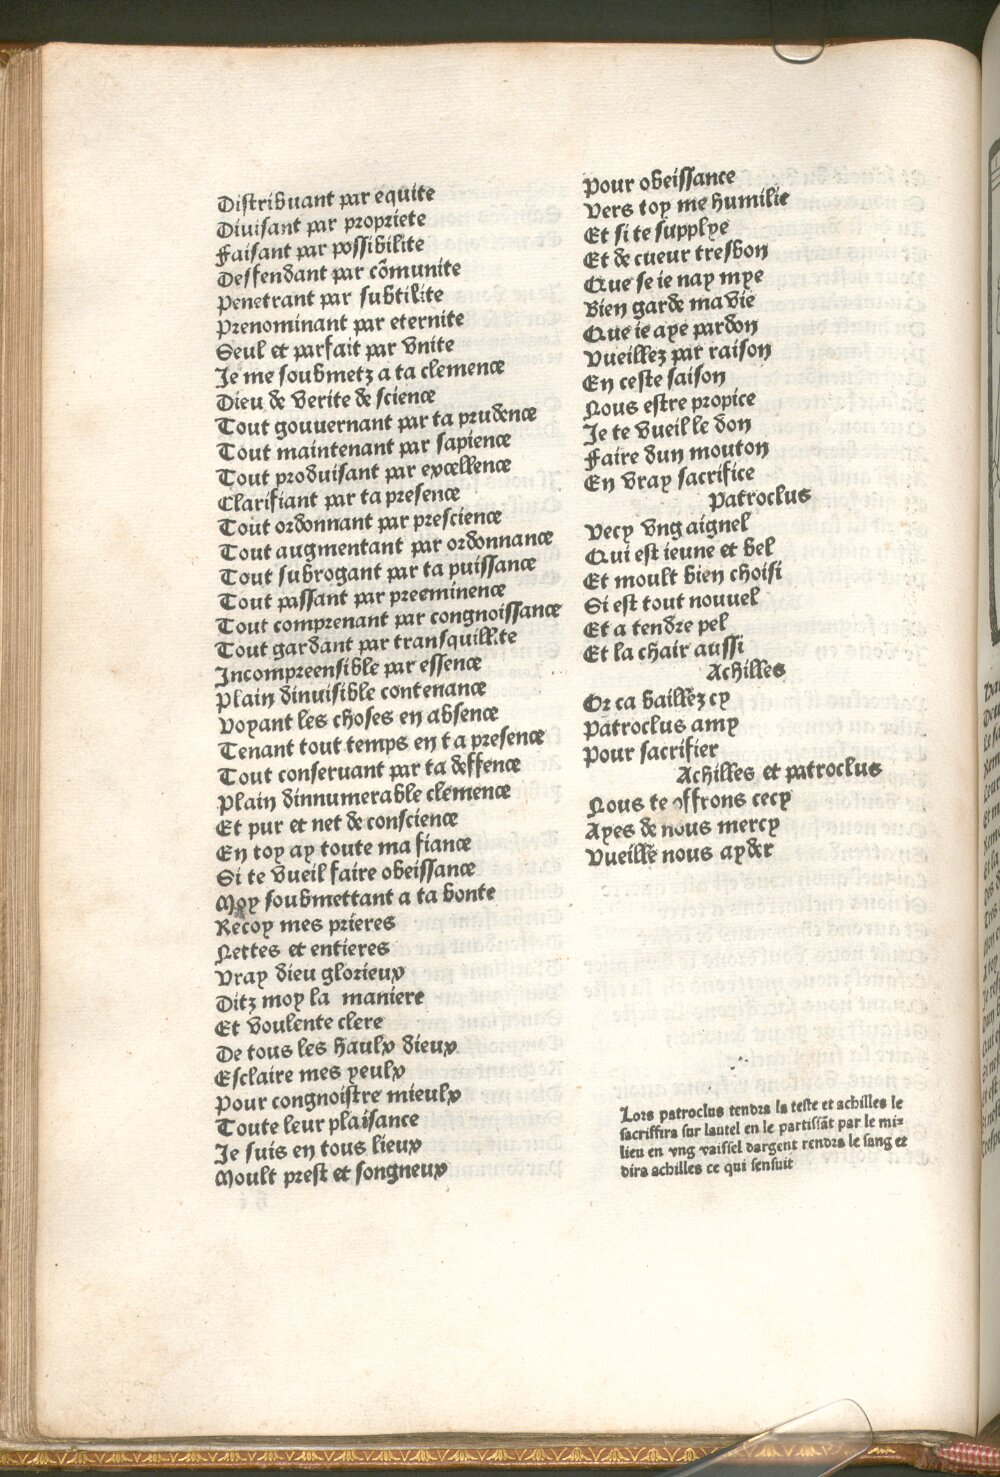 Distribuant par equite
Diuisant par propriete
Faisant par possibilite
Deffendant par cõmunite
Penetrant par subtilite
Prenominant par eternite
Seul et parfait par vnite
Je me soubmetz a ta clemence
Dieu de verite de science
Tout gouuernant par ta prudence
Tout maintenant par sapience
Tout produisant par excellence
Clarifiant par ta presence
Tout ordonnant par prescience
Tout augmentant par ordonnance
Tout subrogant par ta puissance
Tout passant par preeminence
Tout comprenant par congnoissance
Tout gardant par transquillite
Incompreensible par essence
Plain dinuisible contenance
Voyant les choses en absence
Tenant tout temps en ta presence
Tout conseruant par ta deffence
Plain dinnumerable clemence
Et pur et net de conscience
En toy ay toute ma fiance
Si te vueil faire obeissance
Moy soubmettant a ta bonte
Recoy mes prieres
Nettes et entieres
Vray dieu glorieux
Ditz moy la maniere
Et voulente clere
De tous les haulx dieux
Esclaire mes yeulx
Pour congnoistre mieulx
Toute leur plaisance
Je suis en tous lieux
Moult prest et songneux
Pour obeissance
Vers toy me humilie
Et si te supplye
Et de cueur tresbon
Que se ie nay mye
Bien garde ma vie
Que ie aye pardon
Vueillez par raison
En ceste saison
Nous estre propice
Je te vueil le don
Faire dun mouton
En vray sacrifice
Patroclus
Vecy vng aignel
Qui est ieune et bel
Et moult bien choisi
Si est tout nouuel
Et a tendre pel
Et la chair aussi
Achilles
Or ca baillez cy
Patroclus amy
Pour sacrifier
Achilles et patroclus
Nous te offrons cecy
Ayes de nous mercy
Vueille nous ayder
Lors patroclus tendra la teste et achilles le
sacriffira sur lautel en le partissãt par le mi-
lieu en vng vaissel dargent rendra le sang et
dira achilles ce qui sensuit